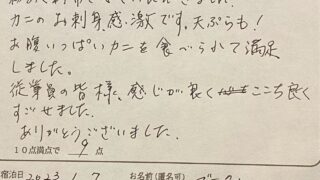 カニのお刺身、感激です。天ぷらも!
お腹いっぱいカニを食べられて満足
しました。
従業員の皆様、感じが良く ここち良く
すごせました。
ありがとうございました。
10点満点で 9 点
宿泊日 2023 1 7 お名前(匿名可)